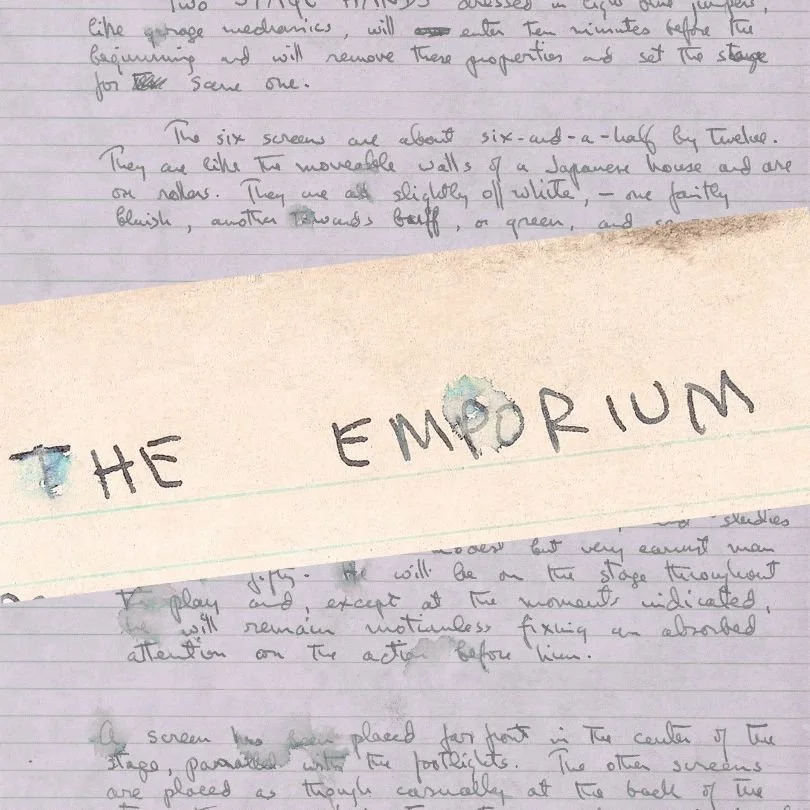 Two STAGE HANDS dressed in light blue jumpers,
like garage mechanics, will enter ten minutes before the
beginning and will remove these properties and set the stage
for scene one.
The six screens are about six-and-a-half by twelve.
They are like the moveable walls of a Japanese house and are
on rollers. They are all slightly off white, – one faintly
bluish, another towards buff, or green, and so
THE EMPORIUM
and studies
modest but very earnest man
fifty. He will be on the stage throughout
the play and, except at the moments indicated,
he will remain motionless fixing an absorbed
attention on the action before him.
A screen has been placed far front in the center of the
stage, parallel with the footlights. The other screens
are placed as though casually at the back of the